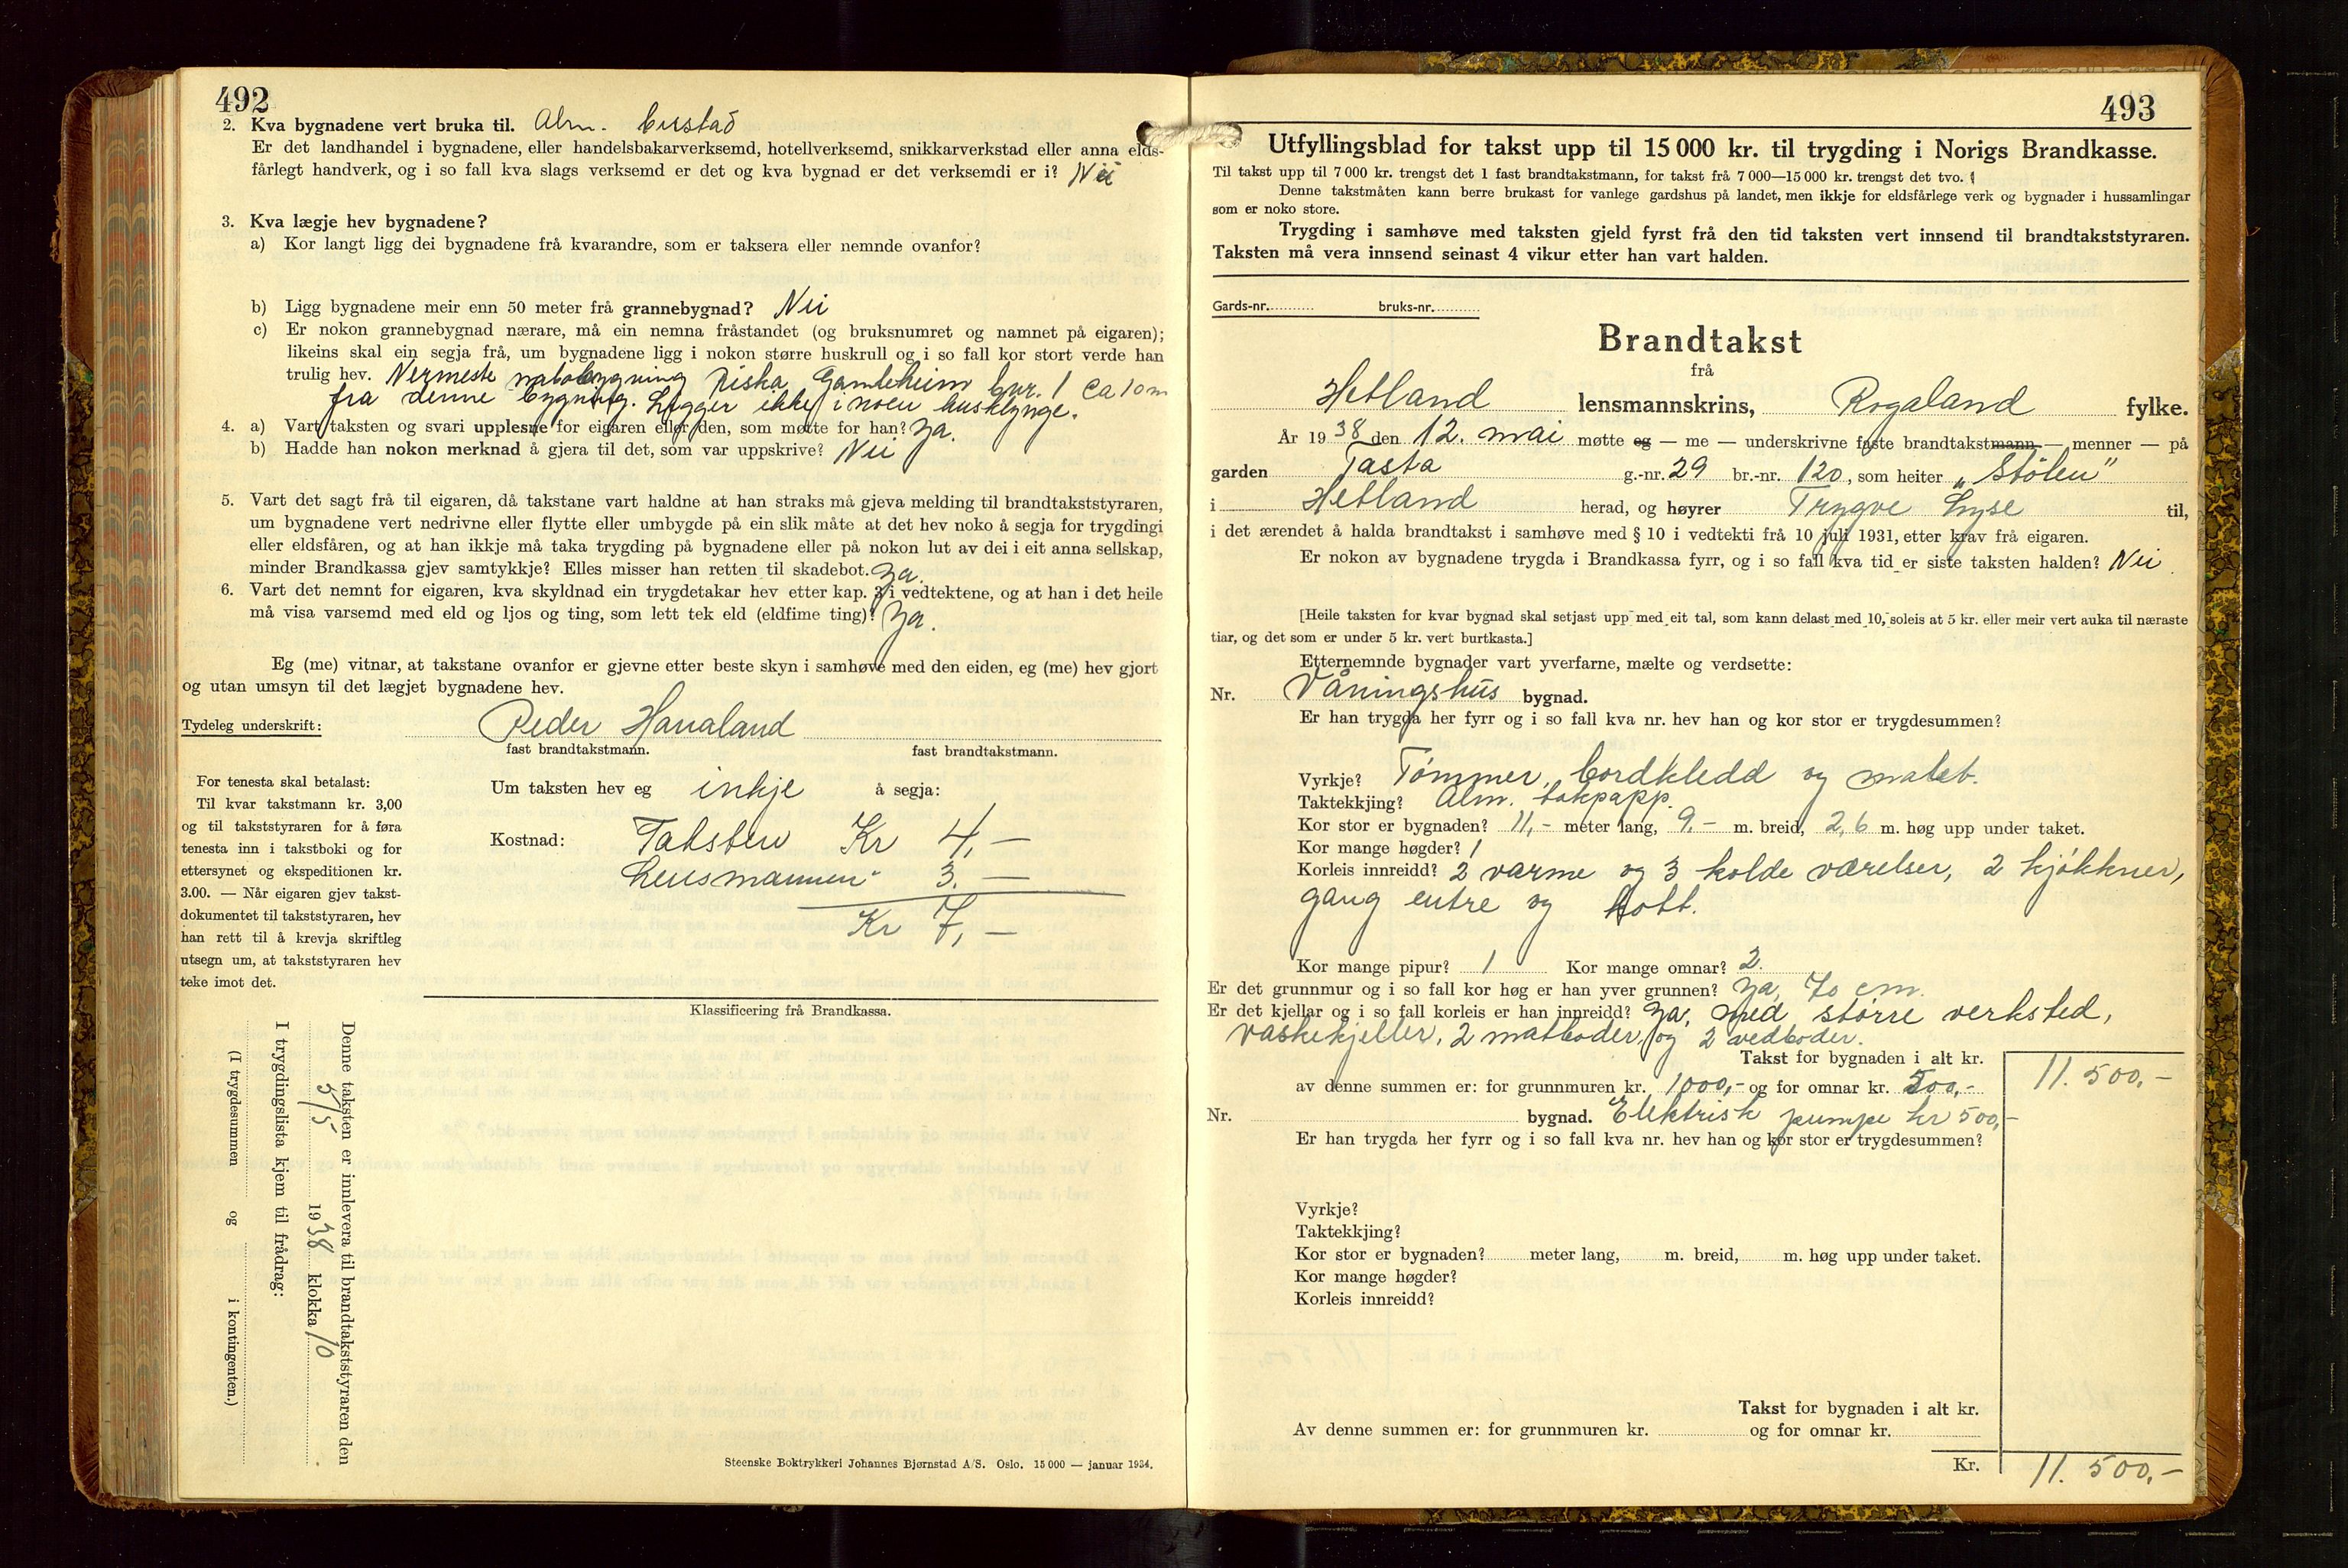 492
2. Kva bygnadene vert bruka til. Alm. bustad
Er det landhandel i bygnadene, eller handelsbakarverksemd, hotellverksemd, snikkarverkstad eller anna elds-
fårlegt handverk, og i so fall kva slags verksemd er det og kva bygnad er det verksemdi er i? Nei
3. Kva lægje hev bygnadene?
a) Kor langt ligg dei bygnadene frå kvarandre, som er taksera eller nemnde ovanfor?
b) Ligg bygnadene meir enn 50 meter frå grannebygnad? Nei
c) Er nokon grannebygnad nærare, må ein nemna fråstandet (og bruksnumret og namnet på eigaren);
likeins skal ein segja frå, um bygnadene ligg i nokon større huskrull og i so fall kor stort verde han
trulig hev. Nermeste nabobygning Riska, Gamleheim bnr. 1 ca 10 m
fra denne bygning. Ligger ikke i noen husklynge.
4. a) Vart taksten og svari upplesne for eigaren eller den, som møtte for han? Ja.
b) Hadde han nokon merknad å gjera til det, som var uppskrive? Nei
5. Vart det sagt frå til eigaren, då takstane vart haldne at han straks må gjeva melding til brandtakststyraren,
um bygnadene vert nedrivne eller flytte eller umbygde på ein slik måte at det hev noko å segja for trygdingi
eller eldsfåren, og at han ikkje må taka trygding på bygnadene eller på nokon lut av dei i eit anna sellskap,
minder Brandkassa gjev samtykkje? Elles misser han retten til skadebot. Ja.
6. Vart det nemnt for eigaren, kva skyldnad ein trygdetakar hev etter kap. 3 i vedtektene, og at han i det heile
må visa varsemd med eld og ljos og ting, som lett tek eld (eldfime ting)? Ja.
Eg (me) vitnar, at takstane ovanfor er gjevne etter beste skyn i samhøve med den eiden, eg (me) hev gjort
og utan umsyn til det lægjet bygnadene hev.
Tydeleg underskrift: Peder Havaland
fast brandtakstmann. fast brandtakstmann.
For tenesta skal betalast:
Til kvar takstmann kr. 3,00
og til takststyraren for å føra
tenesta inn i takstboki og for
ettersynet og ekspeditionen kr.
3.00. — Når eigaren gjev takst-
dokumentet til takststyraren, hev
han rett til å krevja skriftleg
utsegn um, at takststyraren hev
teke imot det.
Um taksten hev eg inkje å segja:
Kostnad: Taksten Kr 4,—
Lensmannen " 3.—
Kr 7,—
Klassificering frå Brandkassa.
Denne taksten er innlevera til brandtakststyraren den
5/5 1938 klokka 10
I trygdingslista kjem til frådrag:
(I trygdesummen og i kontingenten.)
Steenske Boktrykkeri Johannes Bjørnstad A/S. Oslo. 15 000 — januar 1934.
493
Utfyllingsblad for takst upp til 15 000 kr. til trygding i Norigs Brandkasse.
Til takst upp til 7 000 kr. trengst det 1 fast brandtakstmann, for takst frå 7 000—15 000 kr. trengst det tvo.
Denne takstmåten kann berre brukast for vanlege gardshus på landet, men ikkje for eldsfårlege verk og bygnader i hussamlingar
som er noko store.
Trygding i samhøve med taksten gjeld fyrst frå den tid taksten vert innsend til brandtakststyraren.
Taksten må vera innsend seinast 4 vikur etter han vart halden.
Gards-nr. bruks-nr.
Brandtakst
frå
Hetland lensmannskrins, Rogaland fylke.
År 1938 den 12. mai møtte eg — me — underskrivne faste brandtakstmann — menner — på
garden Tasta g.-nr. 29 br.-nr. 120, som heiter „Stølen”
i Hetland herad, og høyrer Trygve Lyse til,
i det ærendet å halda brandtakst i samhøve med § 10 i vedtekti frå 10 juli 1931, etter krav frå eigaren.
Er nokon av bygnadene trygda i Brandkassa fyrr, og i so fall kva tid er siste taksten halden? Nei.
[Heile taksten for kvar bygnad skal setjast upp med eit tal, som kann delast med 10, soleis at 5 kr. eller meir vert auka til næraste
tiar, og det som er under 5 kr. vert burtkasta.]
Etternemnde bygnader vart yverfarne, mælte og verdsette:
Nr. Våningshus bygnad.
Er han trygda her fyrr og i so fall kva nr. hev han og kor stor er trygdesummen?
Vyrkje? Tømmer, bordkledd og malet.
Taktekkjing? Alm. takpapp.
Kor stor er bygnaden? 11,- meter lang, 9,- m. breid, 2,6 m. høg upp under taket.
Kor mange høgder? 1
Korleis innreidd? 2 varme og 3 kolde værelser, 2 kjøkkner,
gang entre og kott.
Kor mange pipur? 1 Kor mange omnar? 2.
Er det grunnmur og i so fall kor høg er han yver grunnen? Ja, 70 cm.
Er det kjellar og i so fall korleis er han innreidd? Ja, med større verksted,
vaskekjeller, 2 matboder, og 2 vedboder.
Takst for bygnaden i alt kr.
av denne summen er: for grunnmuren kr. 1000,- og for omnar kr. 500,- 11.500,-
Nr. bygnad. Elektrisk pumpe kr 500,-
Er han trygda her fyrr og i so fall kva nr. hev han og kor stor er trygdesummen?
Vyrkje?
Taktekkjing?
Kor stor er bygnaden? meter lang, m. breid, m. høg upp under taket.
Kor mange høgder?
Korleis innreidd?
Takst for bygnaden i alt kr.
Av denne summen er: for grunnmuren kr. og for omnar kr.
Kr. 11.500,-